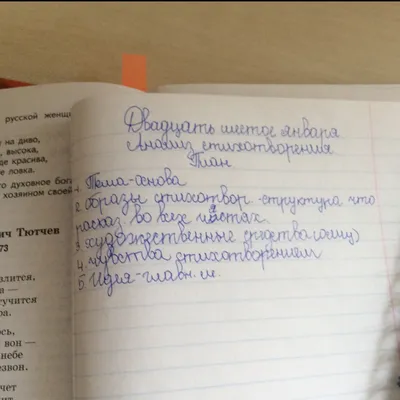 русской женщ
на диво,
высока,
де красива,
ловка.
то духовное бог
хозяином своей
ич Тютчев
73
злится,
а —
тучится
ра.
ось,
вон —
небе
резвон.
чет
Двадцать шестое января
Анализ стихотворения
План
1. Тема-основа
2. образы стихотвор. -структура что
расказ, во всех частях.
3. художественные средства (олиц)
4. чувства стихотворением
5. Идея-главн. м.